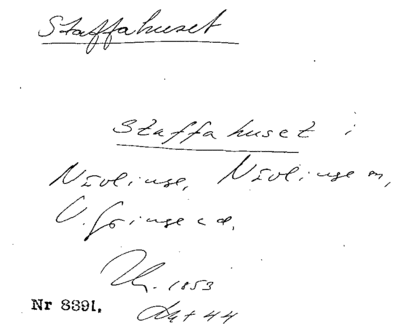 Staffahuset
Staffahuset i
Nävlinge, Nävlinge sn,
V. Göinge hd.
1853
Nr 8391.
44